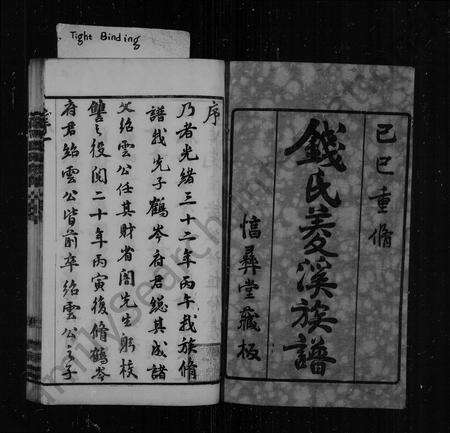 Tight Binding
己巳重脩
錢氏菱溪族譜
惇彝堂藏板
序
乃者光緒三十二年丙午我族脩
譜我先子鶴岑府君總其成諸
父紹雲公任其財省閣先生躬校
讎之役閱二十年丙寅復脩鶴岑
府君紹雲公皆前卒紹雲公之子